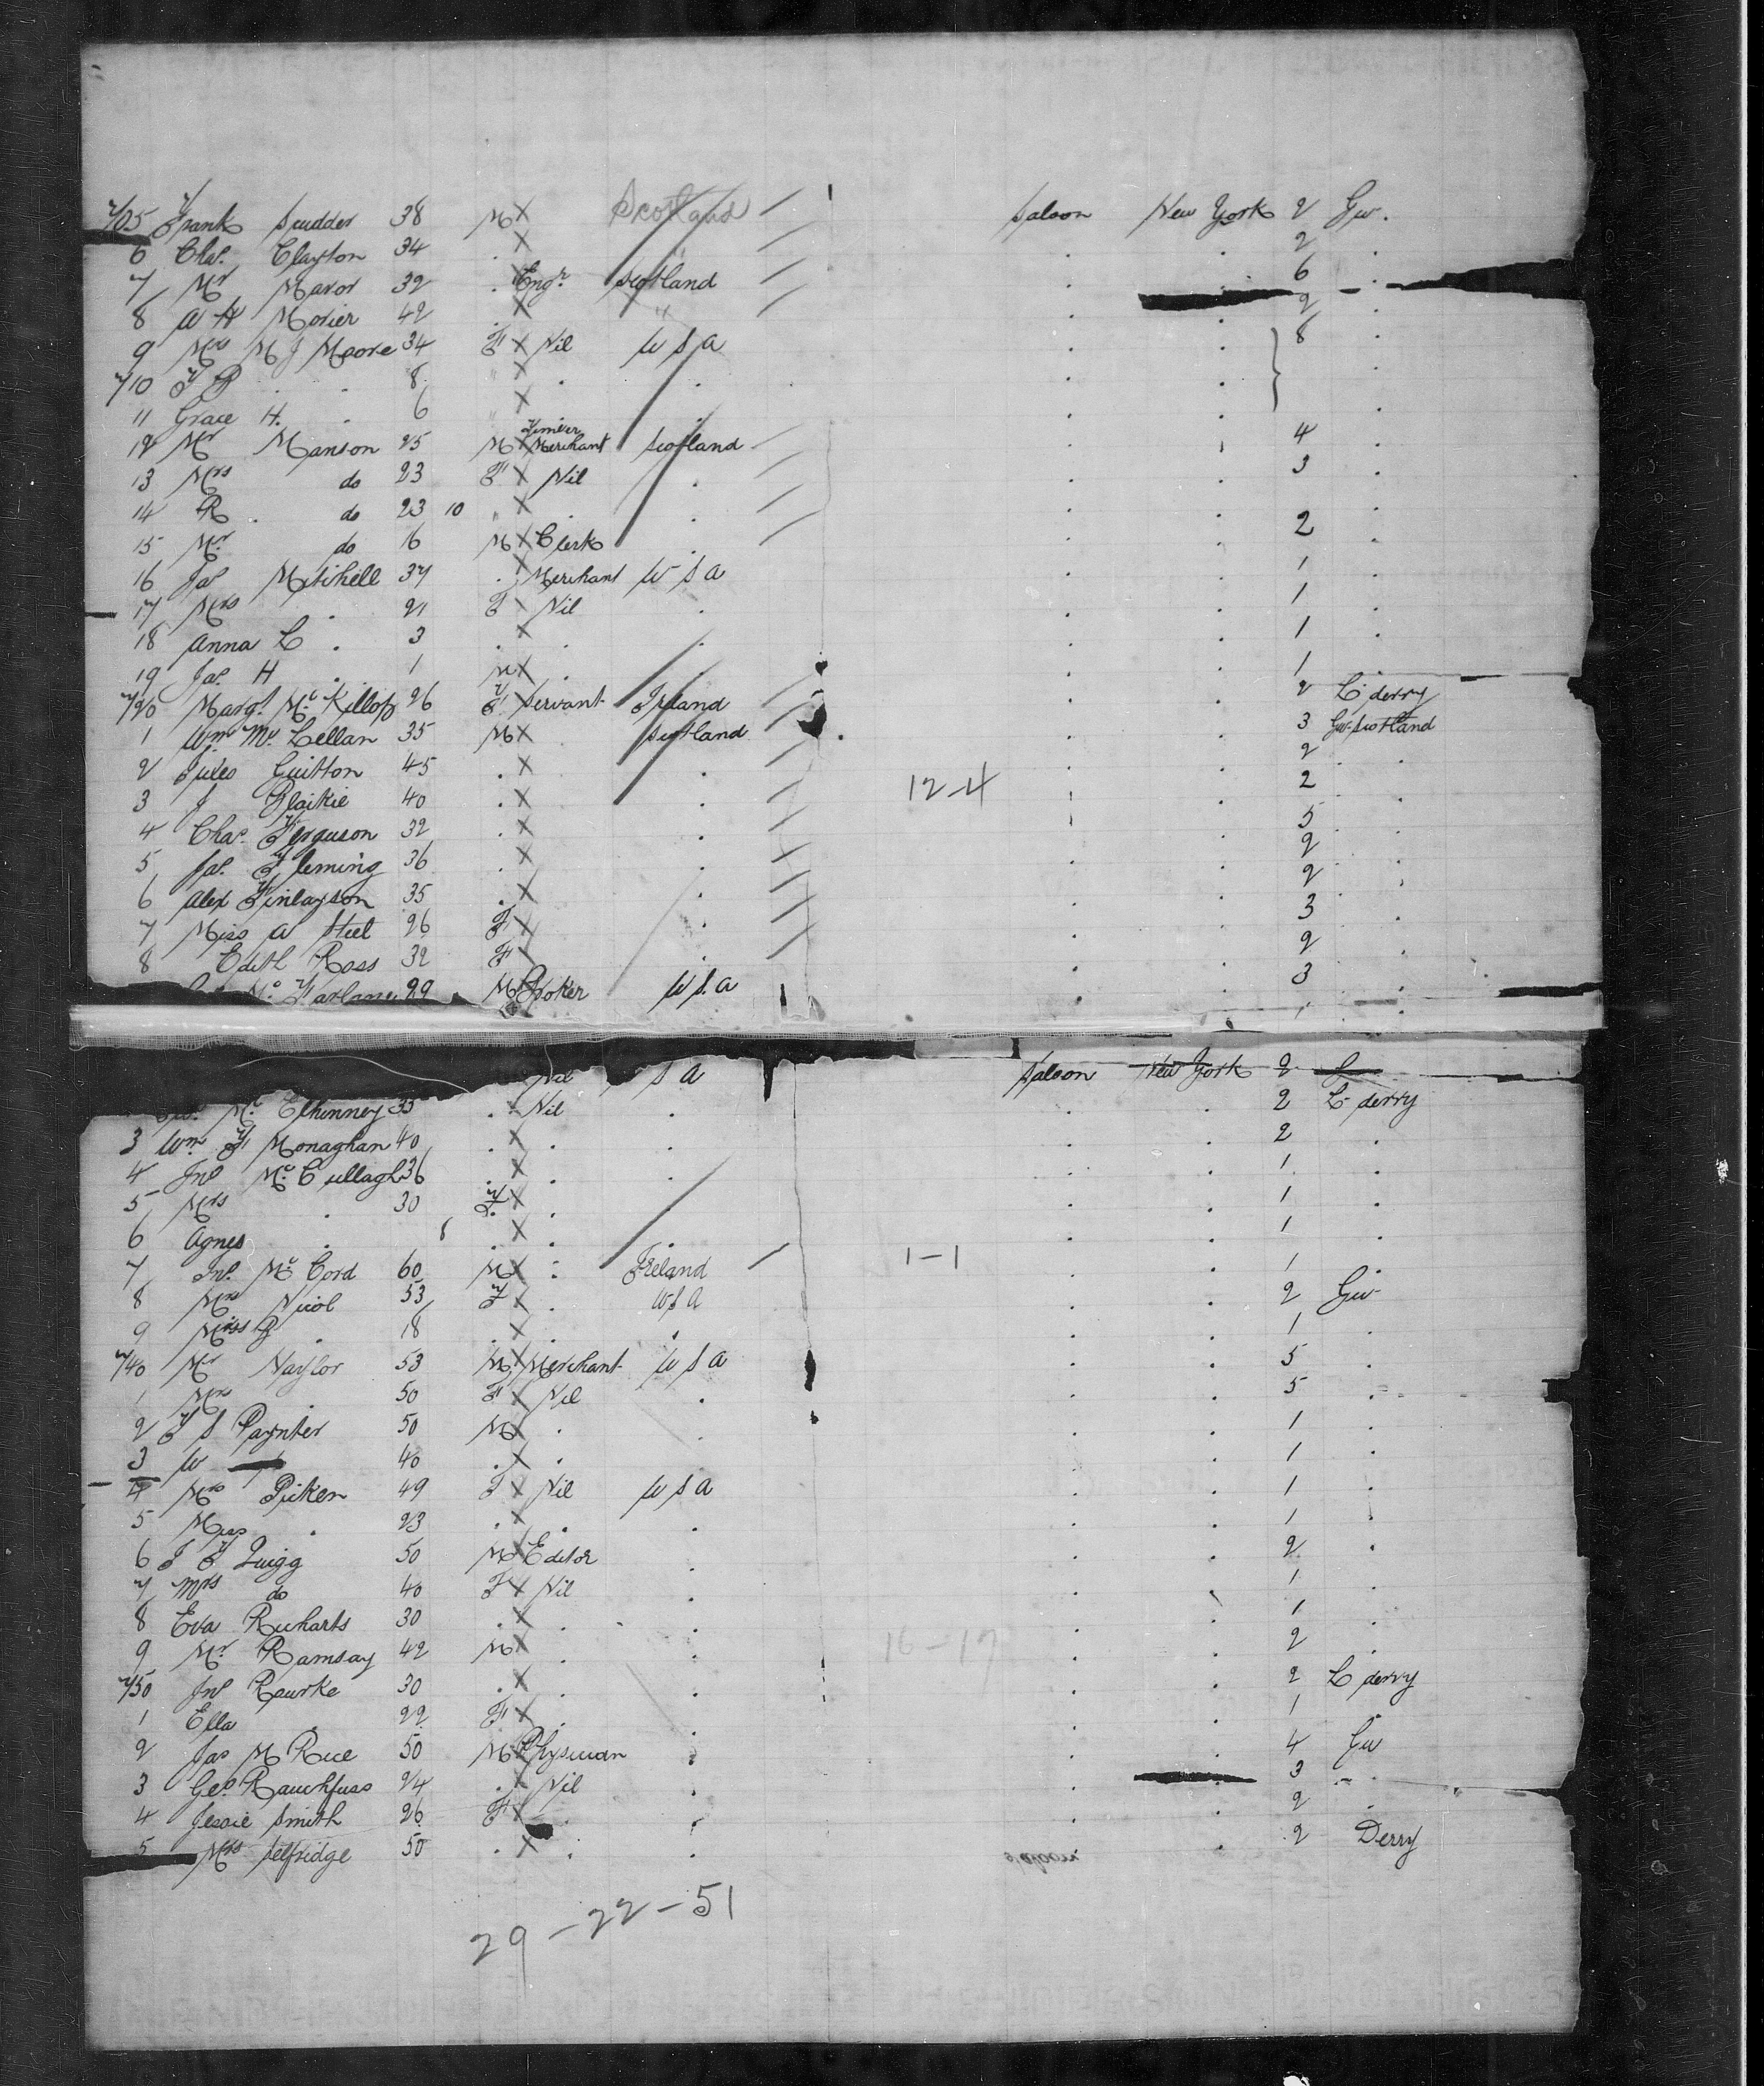 705 Frank Scudder 38 M X Scotland / Saloon New York 2 Gw.
6 Chas. Clayton 34 . X / . . 2 .
7 Mr Mavor 32 . Engr. Scotland / . . 6 .
8 A H Morier 42 . X " / . . 2 .
9 Mrs M J Moore 34 F X Nil U S A . . 8 .
710 F B . . 8 " X . . . . .
11 Grace H. . 6 " X . . .
12 Mr Manson 25 M X Timber Merchant Scotland / . . 4 .
13 Mrs do 23 F X Nil . / . . 3 .
14 R . do 23 10 " X . . / . .
15 Mr. do 16 M X Clerk . / . . 2 .
16 Jas Mitchell 37 . X Merchant U S A . . 1 .
17 Mrs . 21 F X Nil . . . 1 .
18 Anna L . 3 . X . . . . 1 .
19 Jas. H . 1 M X . . . . 1 .
720 Margt. McKillop 26 F X Servant Ireland / . . 2 L derry
1 Wm Mc Lellan 35 M X Scotland / . . 3 Gw Scotland
2 Jules Guitton 45 . X . / . . 2 .
3 J Blaikie 40 . X . / 12-4 . . 2 .
4 Chas. Ferguson 32 . X . / . . 5 .
5 Jas. Fleming 36 . X . / . . 2 .
6 Alex Finlayson 35 . X . / . . 2 .
7 Miss A Steel 26 F X . / . . 3 .
8 Edith Ross 32 F X . / . . 2 .
Mc Farlane 29 M U S. A . . 3 .
Nil S A Saloon New York 2
Mc Elhinney 35 . X Nil . . . 2 L derry
3 Wm. F Monaghan 40 . X . . . . 2 .
4 Jno Mc Cullagh 36 . X . . . . 1 .
5 Mrs . 30 F. X . . . . 1 .
6 Agnes . 8 . X . . . . 1 .
7 Jno. Mc Cord 60 M X . Ireland / 1-1 . . 1
8 Mrs Nicol 53 F X . U S A . . 2 Gw
9 Miss B . 18 . X . . . . 1 .
740 Mr Naylor 53 M X Merchant U S A . . 5 .
1 Mrs . 50 F X Nil . . . 5 .
2 F S Paynter 50 M X . . . . 1 .
3 W 40 . X . . . 1 .
4 Mrs Picken 49 F X Nil U S A . . 1 .
5 Miss . 23 . X . . . . 1 .
6 J F Quigg 50 M X Editor . . . 2 .
7 Mrs do 40 F X Nil . . . 1 .
8 Eva Richarts 30 . X . . . . 1 .
9 Mr. Ramsay 42 M X . . 16-17 . . 2 .
750 Jno Rourke 30 . X . . . . 2 L derry
1 Ella . 22 F X . . . . 1 .
2 Jas M Rice 50 M X Physician . . . 4 Gw
3 Geo. Rauchfuss 24 . X Nil . . . 3 .
4 Jessie Smith 26 F X . . . 2 .
5 Mrs Selfridge 50 . X . . . 2 Derry
29-22-51